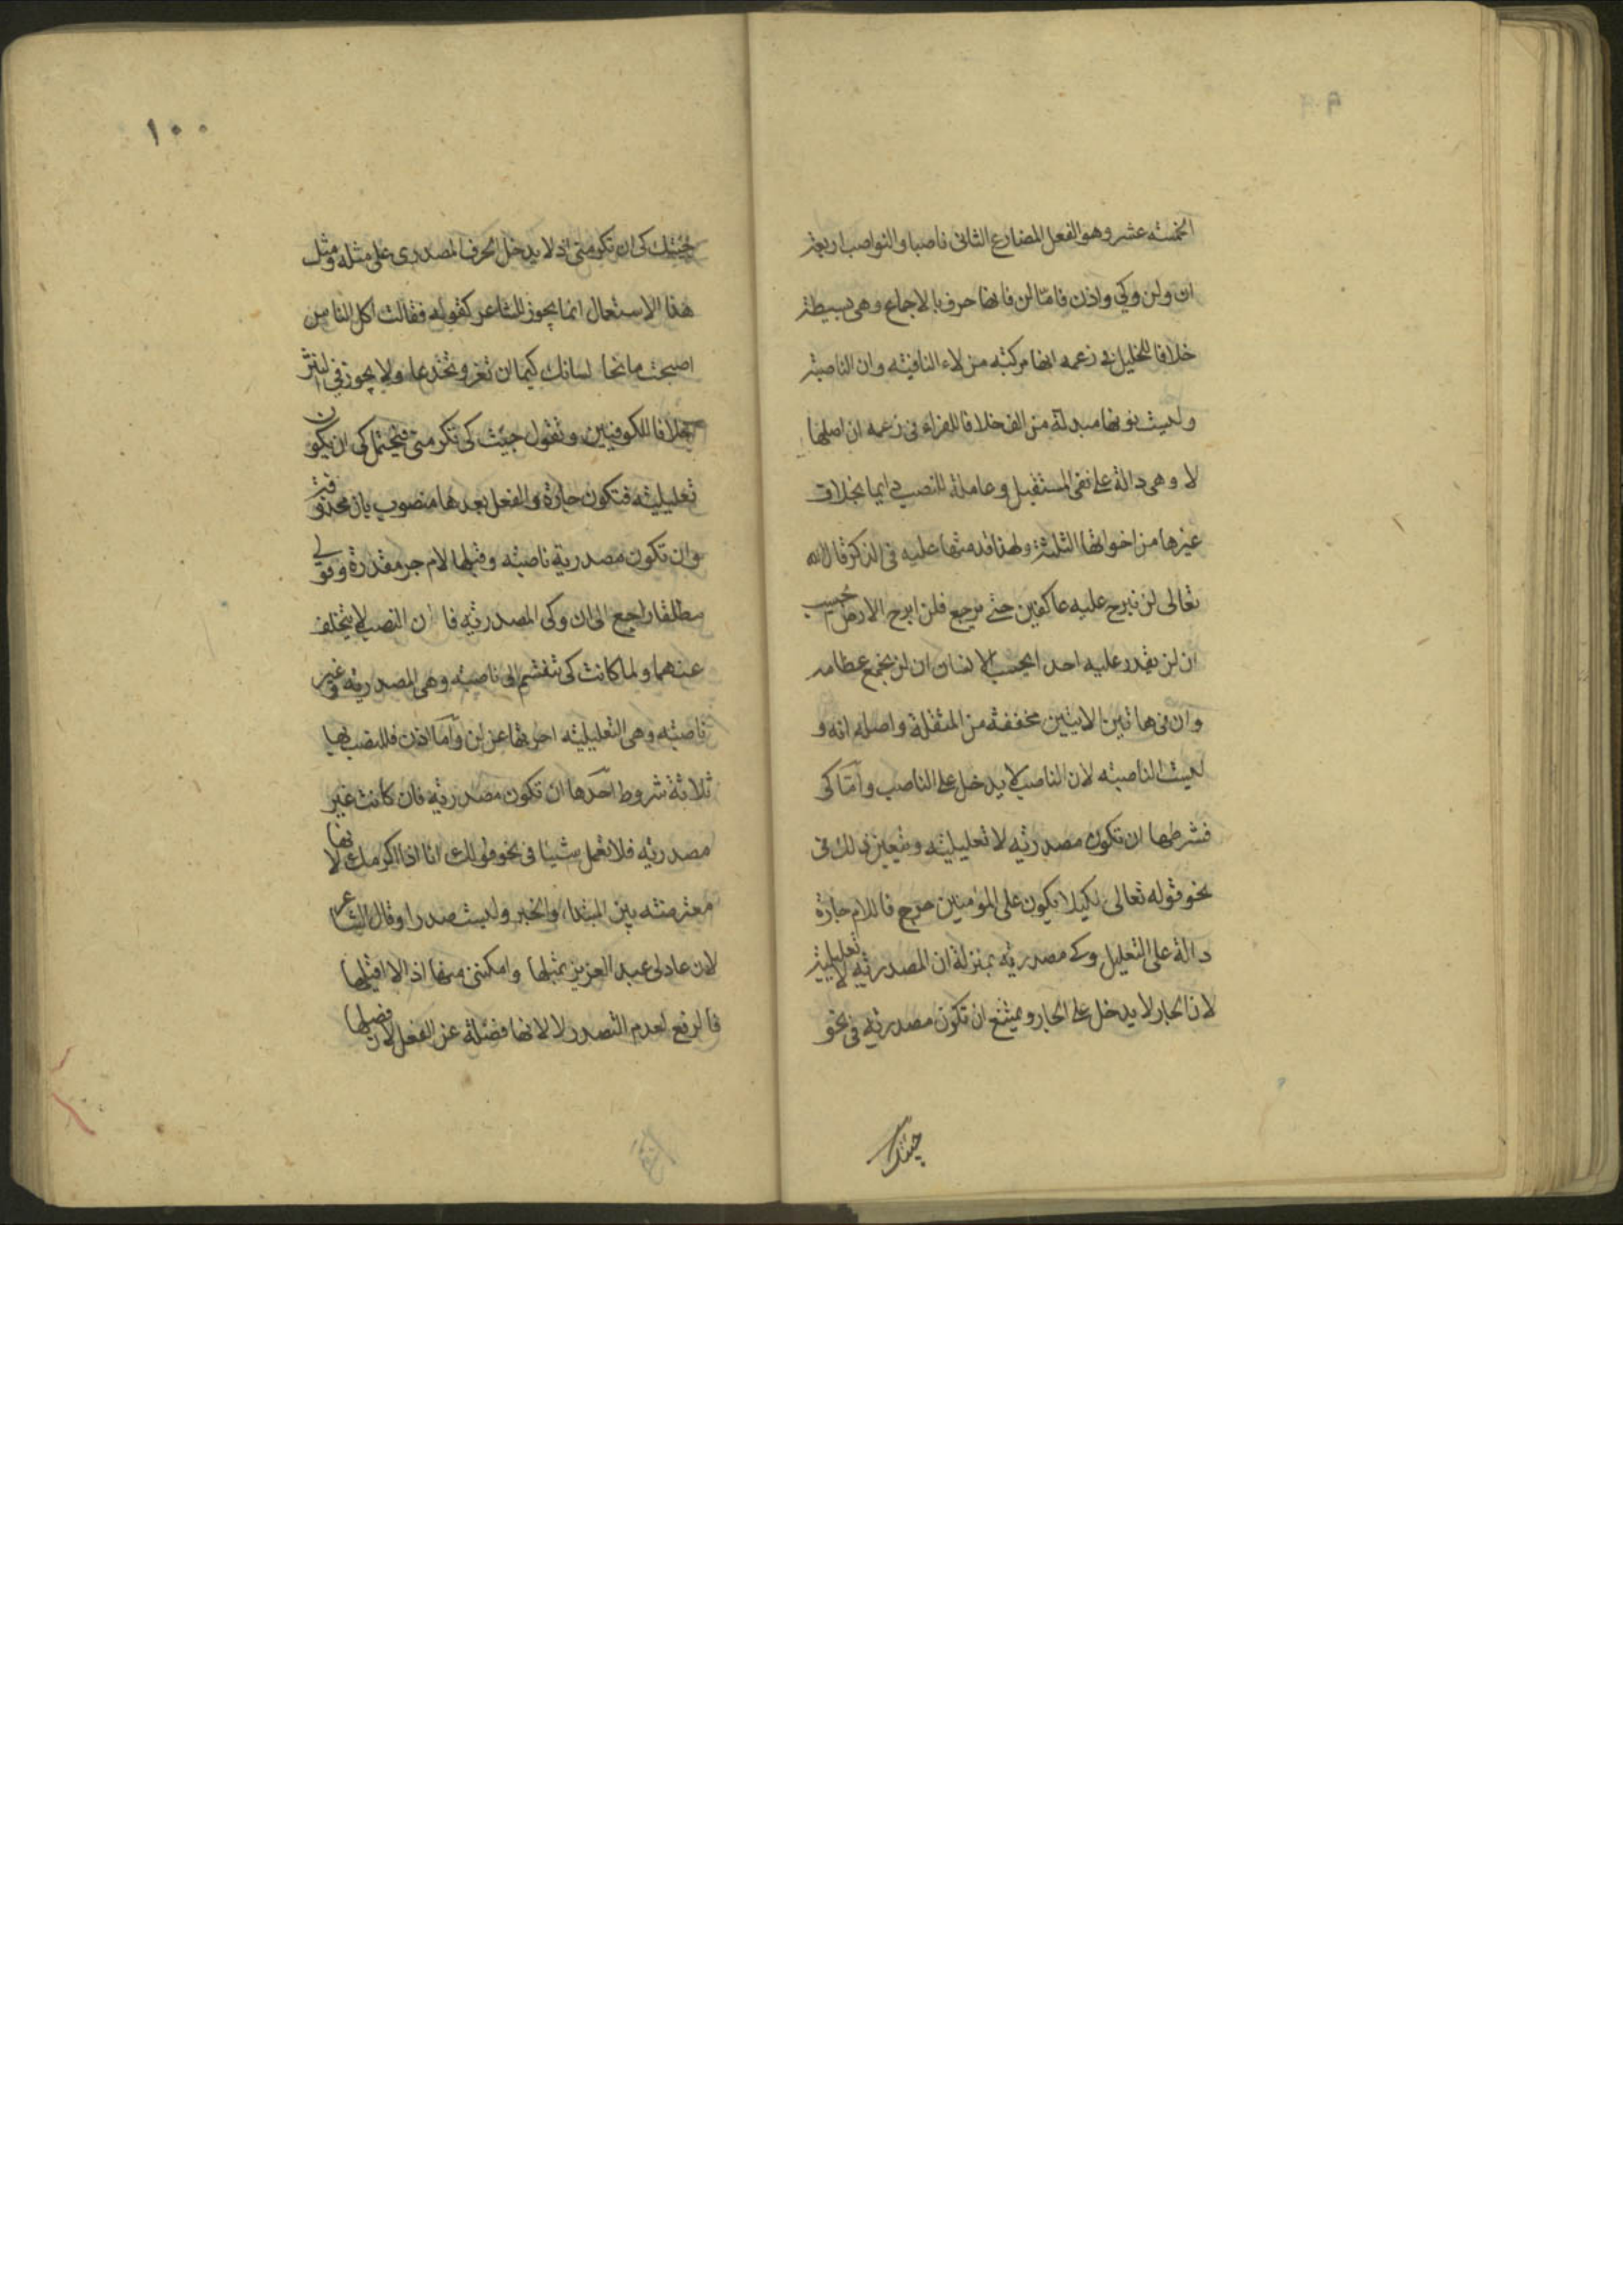 ٩٩
الخمسته عشر وهو الفعل المضارع الثانى ناصبا والنواصب اربعة
ان ولن وكي واذن فامّا لن فانها حرف بالاجماع وهى بسيطة
خلافا للخليل فى زعمه انها مركبته من لاء النافيته وان الناصبة
وليست نونها مبدلة من الف خلافا للفراء فى زعمه ان اصلها
لا وهى دالة على نفى المستقبل وعاملة للنصب دايما بخلاف
غيرها من اخواتها الثلثة ولهذا قدمتها عليه فى الذكر قال الله
تعالى لن نبرح عليه عاكفين حتى يرجع فلن ابرح الارض ايحسب
ان لن يقدر عليه احد ايحسب الانسان ان لن نجمع عظامه
وان فى هاتين الايتين مخففة من المثقلة واصله انه و
ليست الناصبته لان الناصب لا يدخل على الناصب وامّا كى
فشرطها ان تكون مصدريّه لا تعليليّه ويتعين ذالك فى
نحو قوله تعالى لكيلا يكون على المؤمنين حرج فاللام جارة
دالة على التعليل وكى مصدريّه بمنزلة ان المصدريّه لا تعليلية
لان الجار لا يدخل على الجار ويمتنع ان تكون مصدريّه فى نحو
جيتك
١٠٠
جيتك كى ان تكرمنى اذ لا يدخل الحرف المصدرى على مثله ومثل
هذا الاستعمال انما يجوز للشاعر كقوله فقالت اكل الناس
اصبحت مانحا لسانك كيما ان تغر وتخدعا ولا يجوز فى النثر
خلافا للكوفيين وتقول جيت كى تكرمنى فيحتمل كى ان يكون
تعليليته فتكون جارة والفعل بعدها منصوب بان محذوفة
وان تكون مصدرية ناصبته وقبلها لام جر مقدرة وقولى
مطلقا راجع الى ان وكى المصدريّه فا ن النصب لا يتخلف
عنهما ولما كانت كى تنقسم الى ناصبته وهى المصدريّه وغير
ناصبته وهى التعليليته اخرتها عن لن وامّا اذن فللنصب بها
ثلاثة شروط احدها ان تكون مصدريّه فان كانت غير
مصدريّه فلا تعمل شيئا فى نحو قولك انا اذا اكرمك لانها
معترضته بين المبتداء والخبر وليست صدرا وقال الشاعر
لان عاد لى عبد العزيز بمثلها وامكننى منها اذ الا اقيلها
فالرفع لعدم التصدر لا لانها فضلة عن الفعل لان فصلها